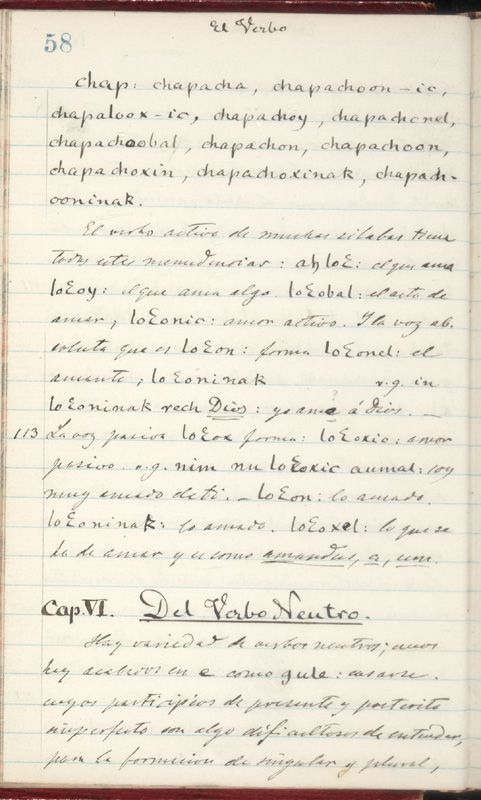 El Verbo
58
chap: chapacha, chapachoon-ic,
chapaloox-ic, chapachoy, chapachonel,
chapachoobal, chapachon, chapachoon,
chapachoxin, chapachoxinak, chapach-
ooninak.
El verbo activo de muchas silabas tiene
todas estas menudencias: ah loƐ: el que ama
loƐoy: el que ama algo. loƐobal: el acto de
amar, loƐonic: amor activo. Y la voz ab-
soluta que es loƐon: forma loƐonel: el
amante; loƐoninak v.g. in
loƐoninak rech Dios: yo amé á Dios. —
113 La voz pasiva loƐox forma: loƐoxic: amor
pasivo. v.g. nim nu loƐoxic aumal: soy
muy amado de ti. — loƐon: lo amado.
loƐoninak: lo amado. loƐoxel: lo que se
ha de amar y es como amandus, a, um.
Cap. VI. Del Verbo Neutro.
Hay variedad de verbos neutros; unos
hay acabados en e como gule: casarse.
cuyos participios de presente y preterito
imperfecto son algo dificultosos de entender,
para la formacion de singular y plural,